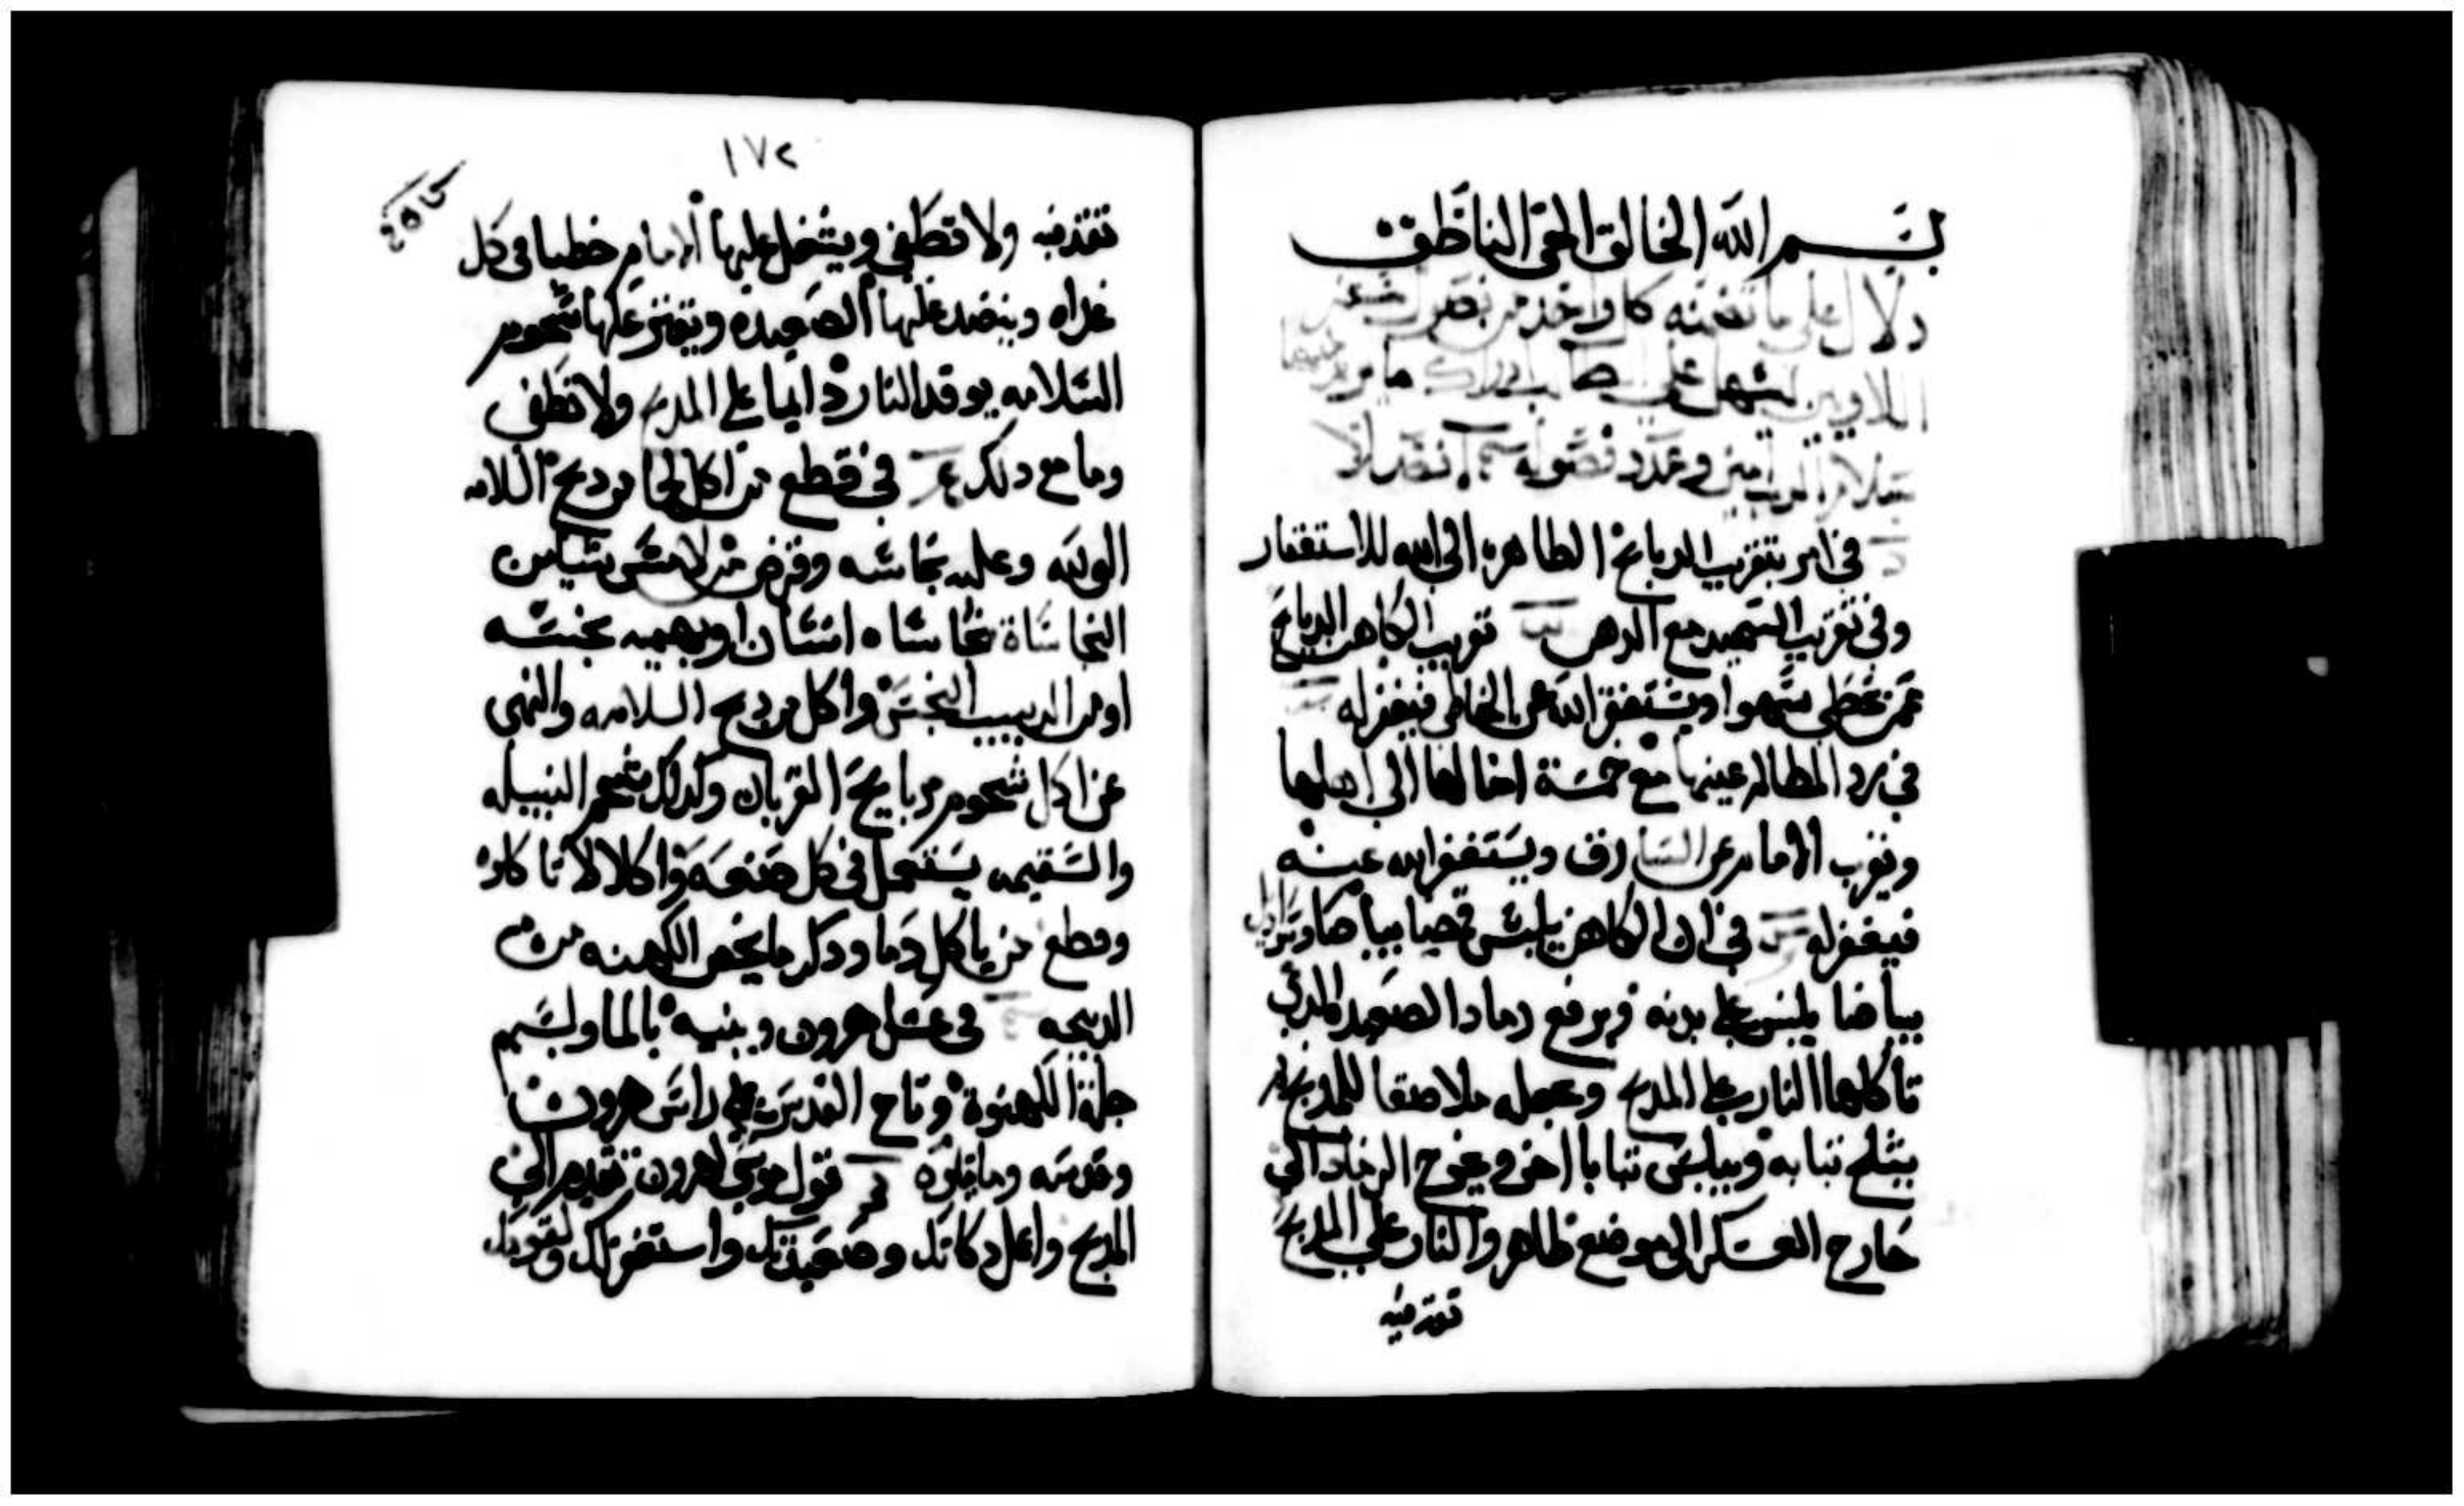 بسم الله الخالق الحي الناطق
دلال على ما تضمنه كل واحد من فصول
اللاويين ليسهل على
بسلام الرب امين وعدد فصوله
في امر بتقريب الدبايح الطاهره الى الله للاستغفار
وفي تقريب السميد مع الدهن تقريب الكاهن الدبايح
عمن يخطي سهوا ويستغفر الله عن الخاطي فيغفر له
في رد المظالم عينها مع خمسة اخالها الى اهلها
ويقرب الامام عن السارق ويستغفر الله عنه
فيغفر له في ان الكاهن يلبس قميصا بياضا وسراويل
بياضا يلبس على بدنه ويرفع رمادا لصعيد المدبح
تاكلها النار على المدبح وعجله ملاصقا للمدبح ثم
يشلح تيابه ويلبس تيابا اخر ويخرج الرماد الى
خارج العسكر الى موضع طاهر والنار على المدبح
تقد فيه
١٧٢
تقد فيه ولا تطفي ويشعل عليها الامام حطبا في كل
غداه وينضد عليها الصعيده ويقتر عليها شحوم
السلامه يوقد النار دايما على المدبح ولا تطفي
وما مع دلك في قطع من اكل لحما من دبح السلامه
الوليه وعليه نجاسه وقرض من لامس شيا من
النجاساة نجاساه انسان او بهيمه نجسه
او من الدبيب النجس واكل من دبح السلامه والنهي
عن اكل شحوم دبايح القربان وكدلك شحم النبيله
والسقيمه يستعمل في كل صنعه واكلا لا تاكلوه
وقطع من ياكل دما ودكر ما يخص الكهنه من
الدبيحه في غسل هرون وبنيه بالما ولبسهم
حلة الكهنوة وتاج القدس على راس هرون
وقدسه وما يتلوه قول موسى لهرون تقدم الى
المدبح واعمل دكاتك وصعيدتك واستغفر لك ولقومك